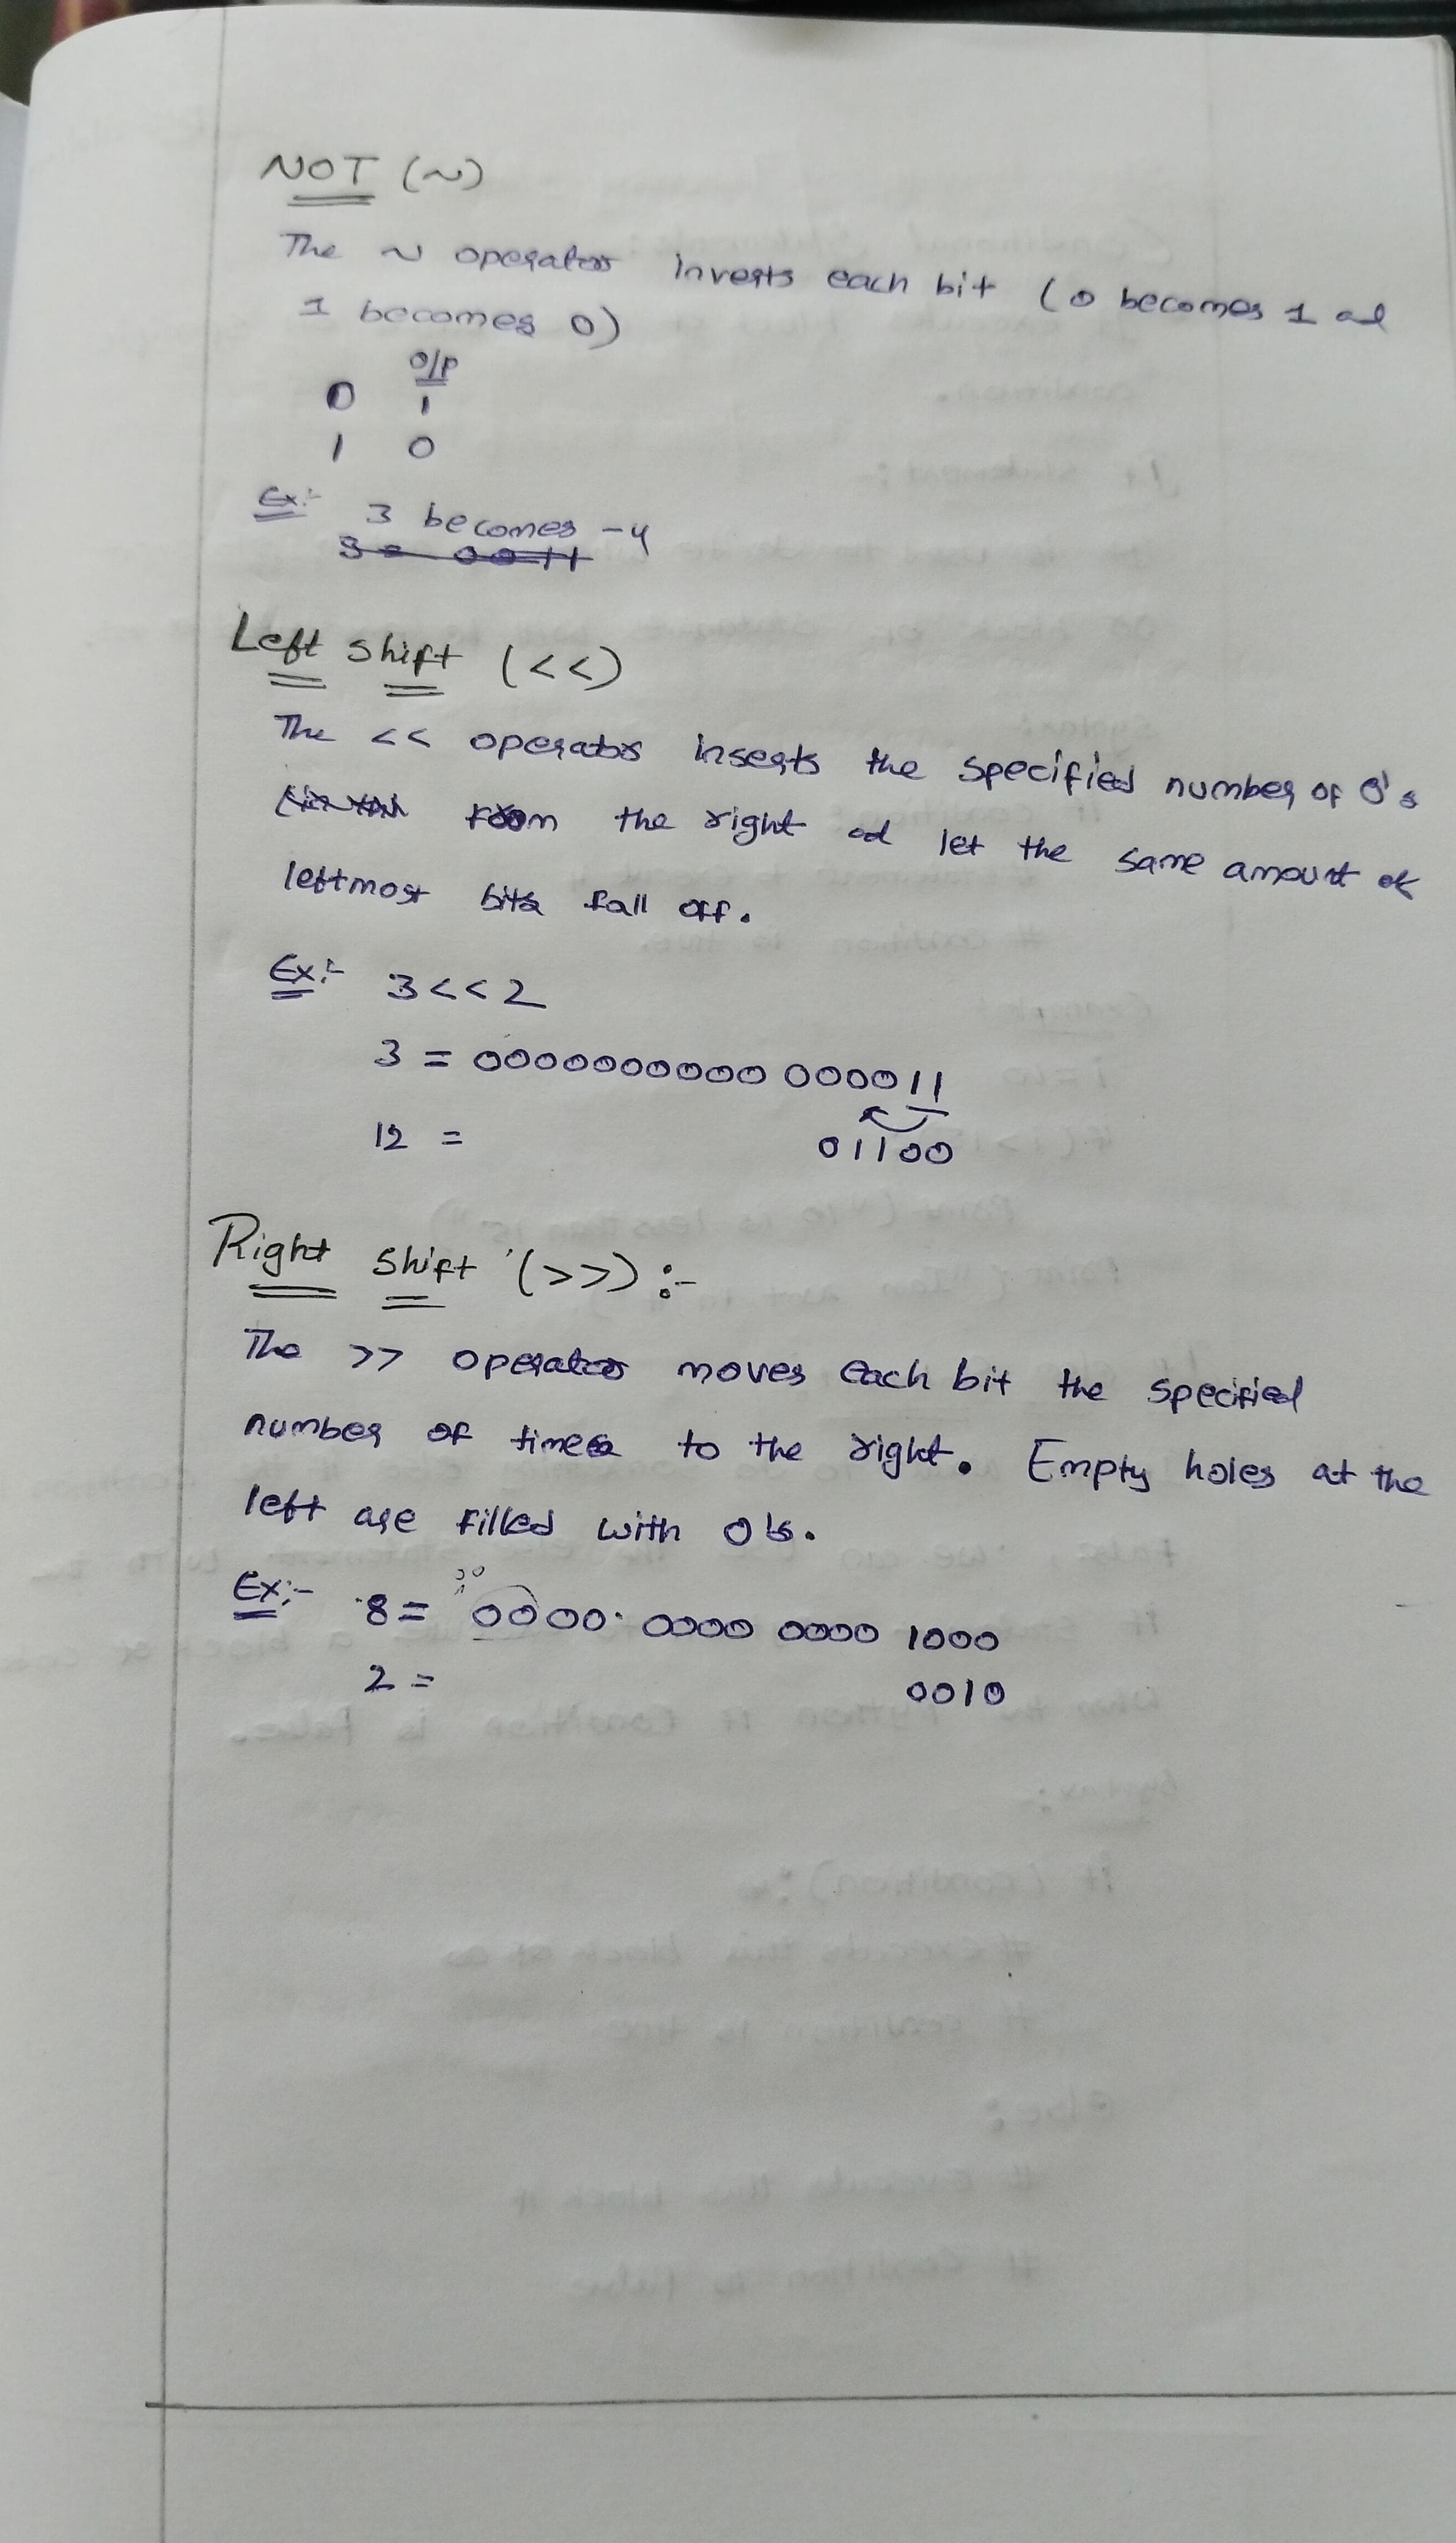 NOT (~)
The ~ operator inverts each bit (0 becomes 1 ad
1 becomes 0)
O/P
0 1
1 0
Ex:- 3 becomes -4
3 = 0011
Left shift (<<)
The << operator inserts the specified number of 0's
from the right ad let the same amount of
leftmost bits fall off.
Ex:- 3<<2
3 = 0000000000 000011
12 = 01100
Right shift (>>) :-
The >> operator moves each bit the specified
number of times to the right. Empty holes at the
left are filled with 0's.
Ex:- 8 = 0000 0000 0000 1000
2 = 0010